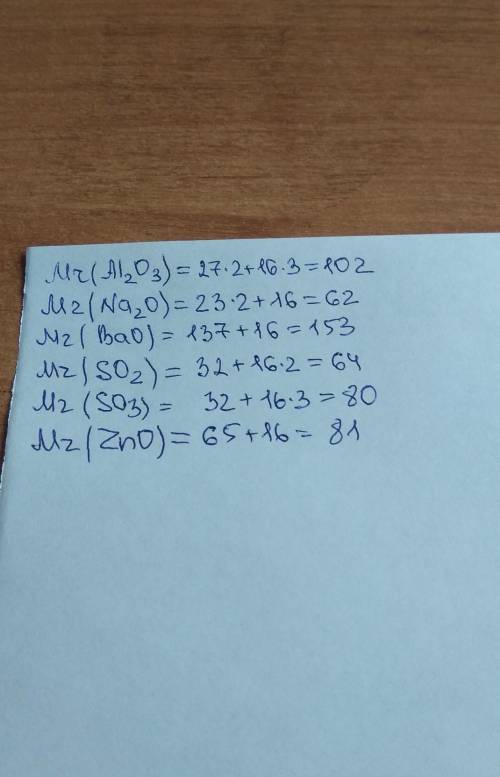 Mr(Al₂O₃)=27·2+16·3=102
Mr(Na₂O)=23·2+16=62
Mr(BaO)=137+16=153
Mr(SO₂)=32+16·2=64
Mr(SO₃)=32+16·3=80
Mr(ZnO)=65+16=81